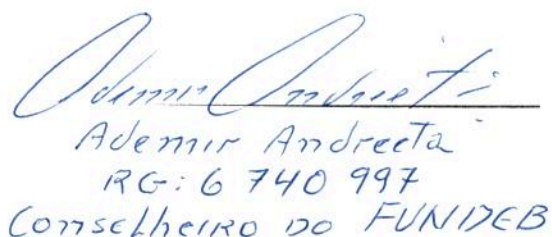 Ademir Andreeti
Ademir Andreeta
RG: 6 740 997
Conselheiro do FUNDEB